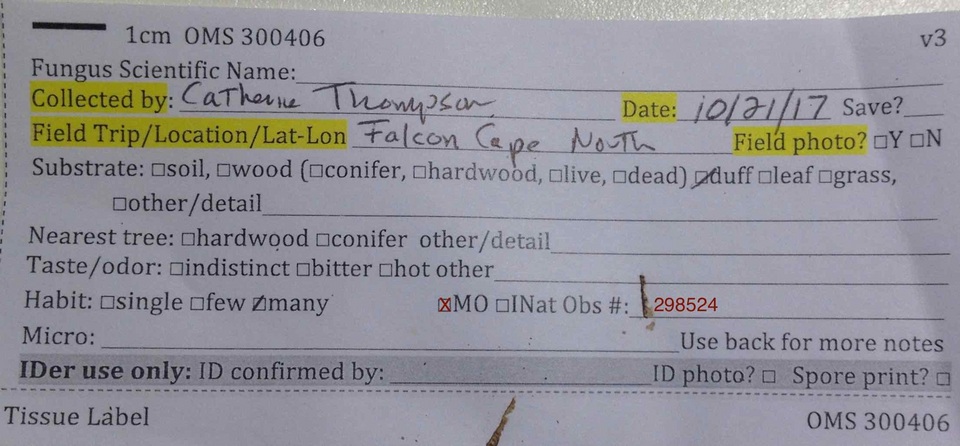 1cm OMS 300406 v3
Fungus Scientific Name:
Collected by: Catherine Thompson Date: 10/21/17 Save?
Field Trip/Location/Lat-Lon Falcon Cape North Field photo? □Y □N
Substrate: □soil, □wood (□conifer, □hardwood, □live, □dead) ☑duff □leaf □grass,
□other/detail
Nearest tree: □hardwood □conifer other/detail
Taste/odor: □indistinct □bitter □hot other
Habit: □single □few ☑many ☒MO □INat Obs #: 298524
Micro: Use back for more notes
IDer use only: ID confirmed by: ID photo? □ Spore print? □
Tissue Label OMS 300406